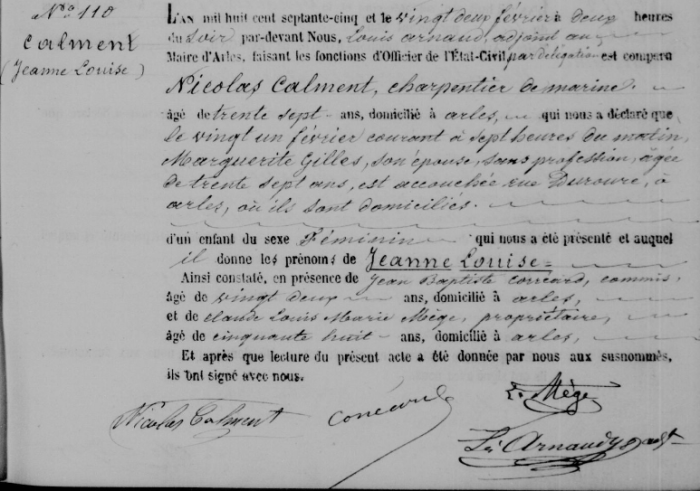 N.° 110
Calment
(Jeanne Louise)
L'AN mil huit cent septante-cinq et le vingt deux février à deux heures
du soir par-devant Nous, Louis arnaud, adjoint au
Maire d'Arles, faisant les fonctions d'Officier de l'État-Civil par délégation est comparu
Nicolas Calment, charpentier de marine.
âgé de trente sept ans, domicilié à arles, qui nous a déclaré que
le vingt un février courant à sept heures du matin,
Marguerite Gilles, son épouse, sans profession, âgée
de trente sept ans, est accouchée rue Duroure, à
arles, où ils sont domiciliés.
d'un enfant du sexe Féminin qui nous a été présenté et auquel
il donne les prénoms de Jeanne Louise
Ainsi constaté, en présence de Jean Baptiste conéard, commis,
âgé de vingt deux ans, domicilié à arles,
et de claude Louis Marie Mège, propriétaire,
âgé de cinquante huit ans, domicilié à arles,
Et après que lecture du présent acte a été donnée par nous aux susnommés,
ils ont signé avec nous.
Mège
Nicolas Calment
Arnaud